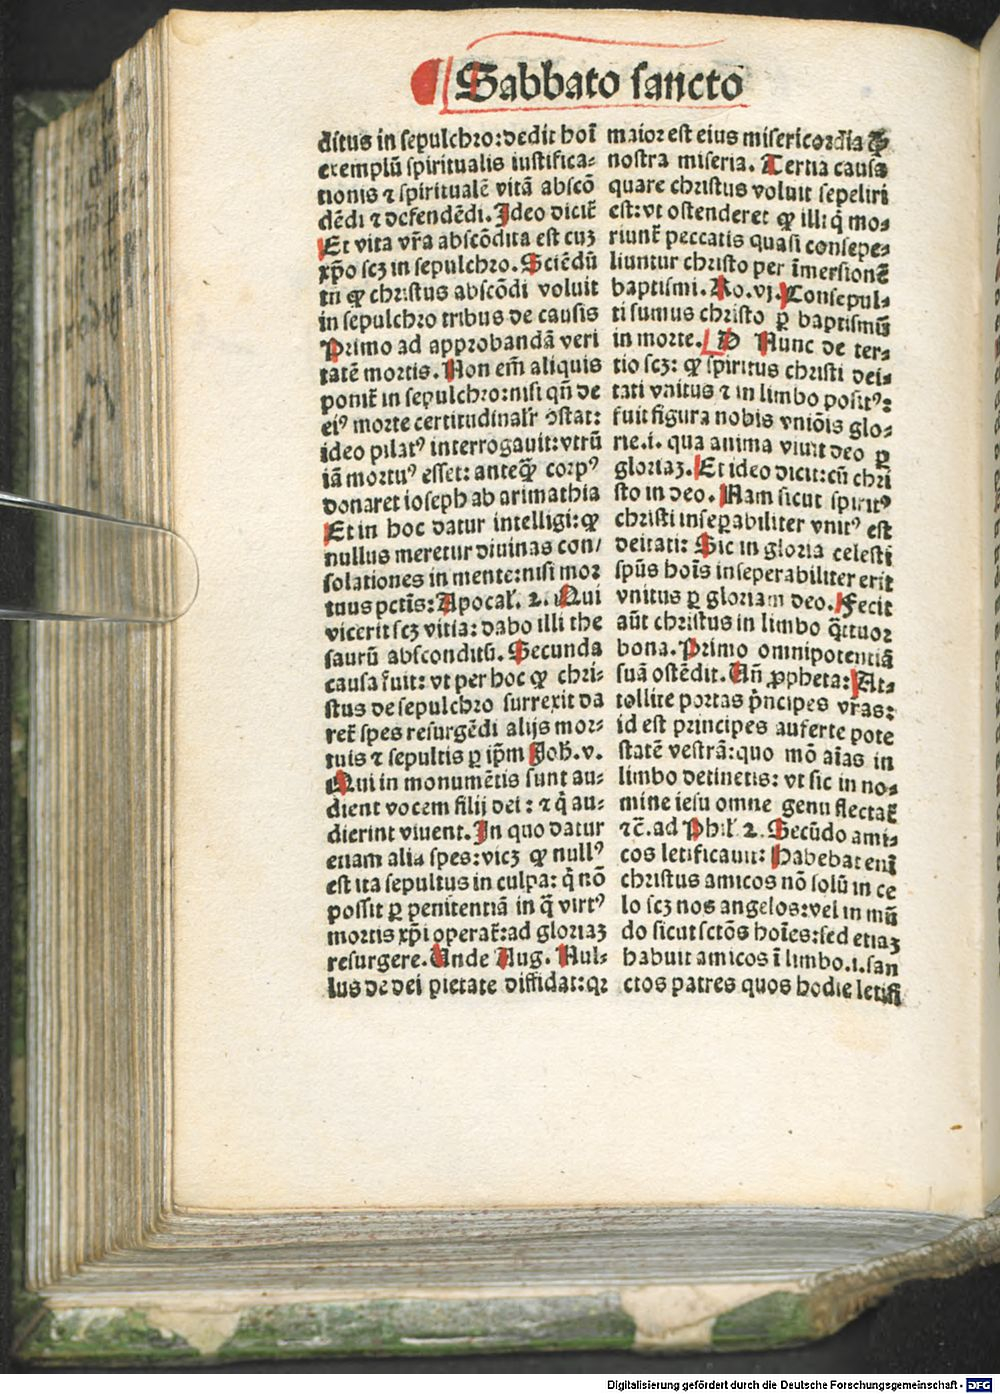 Sabbato sancto
ditus in sepulchro: dedit hoī
exemplū spiritualis iustifica-
tionis ⁊ spiritualē vitā abscō
dēdi ⁊ defendēdi. Ideo dicit̄
Et vita vr̄a abscōdita est cuꝫ
xp̄o scꝫ in sepulchro. Sciēdū
tn̄ ꝙ christus abscōdi voluit
in sepulchro tribus de causis
Primo ad approbandā veri
tatē mortis. Non em̄ aliquis
ponit̄ in sepulchro: nisi qn̄ de
eiꝰ morte certitudinalr̄ ꝯstat:
ideo pilatꝰ interrogauit: vtrū
iā mortuꝰ esset: anteq̄ꝫ corpꝰ
donaret ioseph ab arimathia
Et in hoc datur intelligi: ꝙ
nullus meretur diuinas con/
solationes in mente: nisi mor
tuus pctīs: Apocal̄. 2. Qui
vicerit scꝫ vitia: dabo illi the
saurū absconditū. Secunda
causa fuit: vt per hoc ꝙ chri-
stus de sepulchro surrexit da
ret̄ spes resurgēdi alijs mor-
tuis ⁊ sepultis ꝑ ip̄m Joh̄. v.
Qui in monumētis sunt au-
dient vocem filij dei: ⁊ q̄ au-
dierint viuent. In quo datur
etiam alia spes: vicꝫ ꝙ nullꝰ
est ita sepultus in culpa: q̄ nō
possit ꝑ penitentiā in q̄ virtꝰ
mortis xp̄i operat̄: ad gloriaꝫ
resurgere. Unde Aug. Nul-
lus de dei pietate diffidat: qꝛ
maior est eius misericordia ꝙ̄
nostra miseria. Tertia causa
quare christus voluit sepeliri
est: vt ostenderet ꝙ illi q̄ mo-
riunt̄ peccatis quasi consepe-
liuntur christo per īmersionē
baptismi. Ro. vj. Consepul-
ti sumus christo ꝑ baptismū
in morte. D Nunc de ter-
tio scꝫ: ꝙ spiritus christi dei-
tati vnitus ⁊ in limbo positꝰ:
fuit figura nobis vniōis glo-
rie .i. qua anima viuit deo ꝑ
gloriaꝫ. Et ideo dicit: cū chri
sto in deo. Nam sicut spiritꝰ
christi inseꝑabiliter vnitꝰ est
deitati: Sic in gloria celesti
spūs hoīs inseperabiliter erit
vnitus ꝑ gloriam deo. Fecit
aūt christus in limbo q̄ttuor
bona. Primo omnipotentiā
suā ostēdit. Un̄ ꝓpheta: At-
tollite portas p̄ncipes vr̄as:
id est principes auferte pote
statē vestrā: quo mō aīas in
limbo detinetis: vt sic in no-
mine iesu omne genu flectat̄
⁊c̄. ad Phil̄ 2. Secūdo ami-
cos letificauit: Habebat enī
christus amicos nō solū in ce
lo scꝫ nos angelos: vel in mū
do sicut sctōs hoīes: sed etiaꝫ
habuit amicos ī limbo .i. san
ctos patres quos hodie letifi
Digitalisierung gefördert durch die Deutsche Forschungsgemeinschaft - DFG